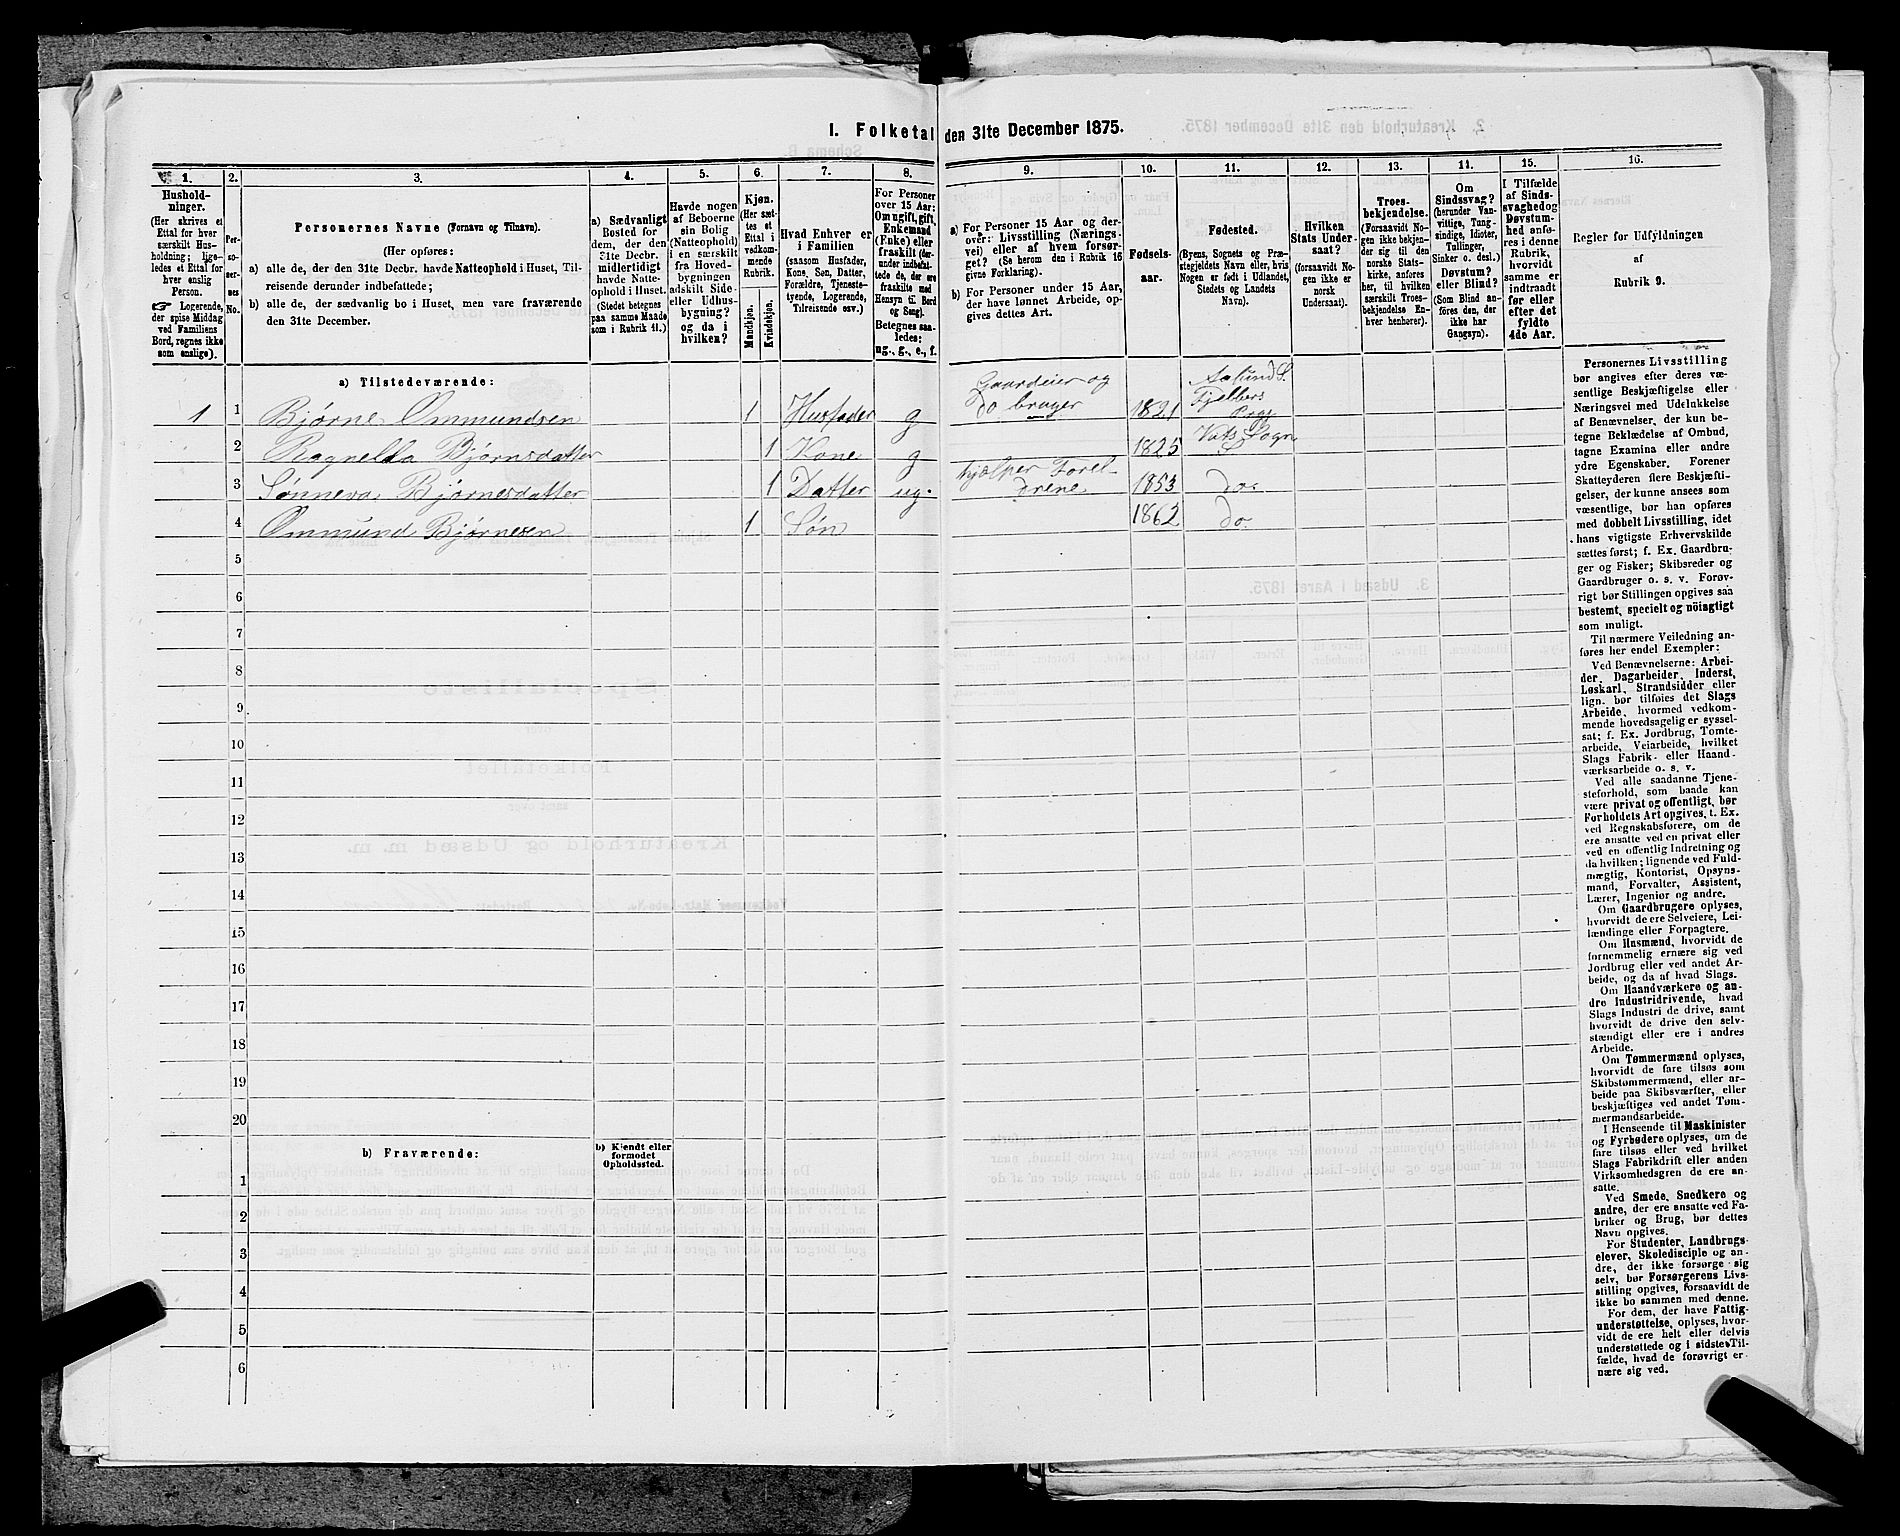 I. Folketal den 31te December 1875.
1.
Hushold-
ninger.
(Her skrives et
Ettal for hver
særskilt Hus-
holdning; lige-
ledes et Ettal for
hver enslig
Person.
☞ Logerende,
der spise Middag
ved Familiens
Bord, regnes ikke
som enslige).
2.
Per-
soner-
nes
No.
3.
Personernes Navne (Fornavn og Tilnavn).
(Her opføres:
a) alle de, der den 31te Decbr. havde Natteophold i Huset, Til-
reisende derunder indbefattede;
b) alle de, der sædvanlig bo i Huset, men vare fraværende
den 31te December.
4.
a) Sædvanligt
Bosted for
dem, der den
31te Decbr.
midlertidigt
havde Natte-
ophold i Huset.
(Stedet betegnes
paa samme Maade
som i Rubrik 11.)
5.
Havde nogen
af Beboerne
sin Bolig
(Natteophold)
i en særskilt
fra Hoved-
bygningen
adskilt Side-
eller Udhus-
bygning?
og da i
hvilken?
6.
Kjøn.
(Her sæt-
tes et
Ettal i
vedkom-
mende
Rubrik.
Mandkjøn.
Kvindekjøn.
7.
Hvad Enhver er
i Familien
(saasom Husfader,
Kone, Søn, Datter,
Forældre, Tjeneste-
tyende, Logerende,
Tilreisende osv.)
8.
For Personer
over 15 Aar:
Om ugift, gift,
Enkemand
(Enke) eller
fraskilt (der-
under indbefat-
tede de, der ere
fraskilte med
Hensyn til Bord
og Seng).
Betegnes saa-
ledes:
ug., g., e., f.
9.
a) For Personer 15 Aar og der-
over: Livsstilling (Nærings-
vei) eller af hvem forsør-
get? (Se herom den i Rubrik 16
givne Forklaring).
b) For Personer under 15 Aar,
der have lønnet Arbeide, op-
gives dettes Art.
10.
Fødsels-
aar.
11.
Fødested.
(Byens, Sognets og Præ-
stegjeldets Navn eller, hvis
Nogen er født i Udlandet,
Stedets og Landets
Navn).
12.
Hvilken
Stats Under-
saat?
(forsaavidt No-
gen ikke er
norsk
Undersaat).
13.
Troes-
bekjendelse.
(Forsaavidt No-
gen ikke bekjen-
der sig til den
norske Stats-
kirke, anføres
her, til hvilken
særskilt Troes-
bekjendelse En-
hver henhører).
14.
Om
Sindssvag?
(herunder Van-
vittige, Tung-
sindige, Idioter,
Tullinger,
Sinker o. desl.)
Døvstum?
eller Blind?
(Som Blind an-
føres den, der
ikke har
Gangsyn).
15.
I Tilfælde
af Sinds-
svaghed og
Døvstum-
hed anfø-
res i denne
Rubrik,
hvorvidt
samme er
indtraadt
før eller
efter det
fyldte
4de Aar.
16.
Regler for Udfyldningen
af
Rubrik 9.
a) Tilstedeværende:
1 1 Bjørne Ommundsen 1 Husfader g Gaardeier og do bruger 1821 Aalund S. Fjelbers Prgj
2 Ragnelda Bjørnsdatter 1 Kone g 1825 Vats Sogn
3 Sønneva Bjørnesdatter 1 Datter ug. hjælper Forel-drene 1853 do.
4 Ommund Bjørnesen 1 Søn 1862 do.
5
6
7
8
9
10
11
12
13
14
15
16
17
18
19
20
b) Fraværende:
b) Kjendt eller
formodet
Opholdssted.
1
2
3
4
5
6
Personernes Livsstilling
bør angives efter deres væ-
sentlige Beskjæftigelse eller
Næringsvei med Udelukkelse
af Benævnelser, der kun be-
tegne Beklædelse af Ombud,
tagne Examina eller andre
ydre Egenskaber. Forener
Skatteyderen flere Beskjæfti-
gelser, der kunne ansees som
væsentlige, bør han opføres
med dobbelt Livsstilling, idet
hans vigtigste Erhvervskilde
sættes først; f. Ex. Gaardbru-
ger og Fisker; Skibsreder og
Gaardbruger o. s. v. Forøv-
rigt bør Stillingen opgives saa
bestemt, specielt og nöiagtigt
som muligt.
Til nærmere Veiledning an-
føres her endel Exempler:
Ved Benævnelserne: Arbei-
der, Dagarbeider, Inderst,
Løskarl, Strandsidder eller
lign. bør tilføies det Slags
Arbeide, hvormed vedkom-
mende hovedsagelig er syssel-
sat; f. Ex. Jordbrug, Tomte-
arbeide, Veiarbeide, hvilket
Slags Fabrik- eller Haand-
værksarbeide o. s. v.
Ved alle saadanne Tjene-
steforhold, som baade kan
være privat og offentligt, bør
Forholdets Art opgives, t. Ex.
ved Regnskabsførere, om de
ere ansatte ved en privat eller
ved en offentlig Indretning og
da hvilken; lignende ved Fuld-
mægtig, Kontorist, Opsyns-
mand, Forvalter, Assistent,
Lærer, Ingeniør og andre.
Om Gaardbrugere oplyses,
hvorvidt de ere Selveiere, Lei-
lændinge eller Forpagtere.
Om Husmænd, hvorvidt de
fornemmelig ernære sig ved
Jordbrug eller ved andet Ar-
beide, og da af hvad Slags.
Om Haandværkere og an-
dre Industridrivende, hvad
Slags Industri de drive, samt
hvorvidt de drive den selv-
stændigt eller ere i andres
Arbeide.
Om Tømmermænd oplyses,
hvorvidt de fare tilsøs som
Skibstømmermænd, eller ar-
beide paa Skibsværfter, eller
beskjæftiges ved andet Tøm-
mermandsarbeide.
I Henseende til Maskinister
og Fyrbødere oplyses, om de
fare tilsøs eller ved hvilket
Slags Fabrikdrift eller anden
Virksomhedsgren de ere an-
satte.
Ved Smede, Snedkere og
andre, der ere ansatte ved Fa-
briker og Brug, bør dettes
Navn opgives.
For Studenter, Landbrugs-
elever, Skoledisciple og an-
dre, der ikke forsørge sig
selv, bør Forsørgerens Livs-
stilling opgives, forsaavidt de
ikke bo sammen med denne.
For dem, der have Fattig-
understøttelse, oplyses, hvor-
vidt de ere helt eller delvis
understøttede og i sidste Til-
fælde, hvad de forøvrigt er-
nære sig ved.